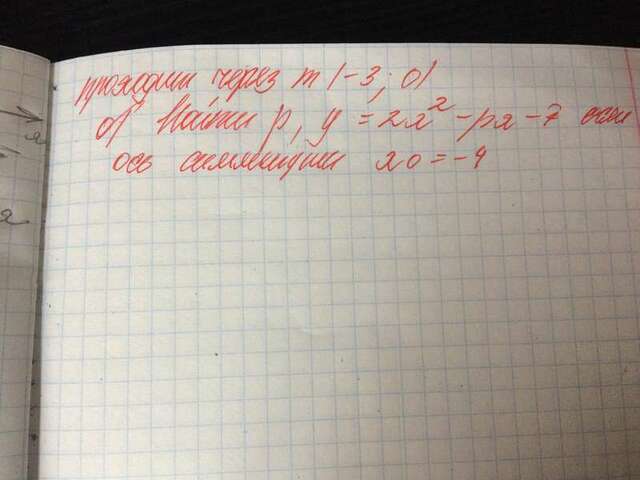 проходит через т (-3; 0)
Найти p, y = 2x² - px - 7 если
ось симметрии x0 = -4
x
x